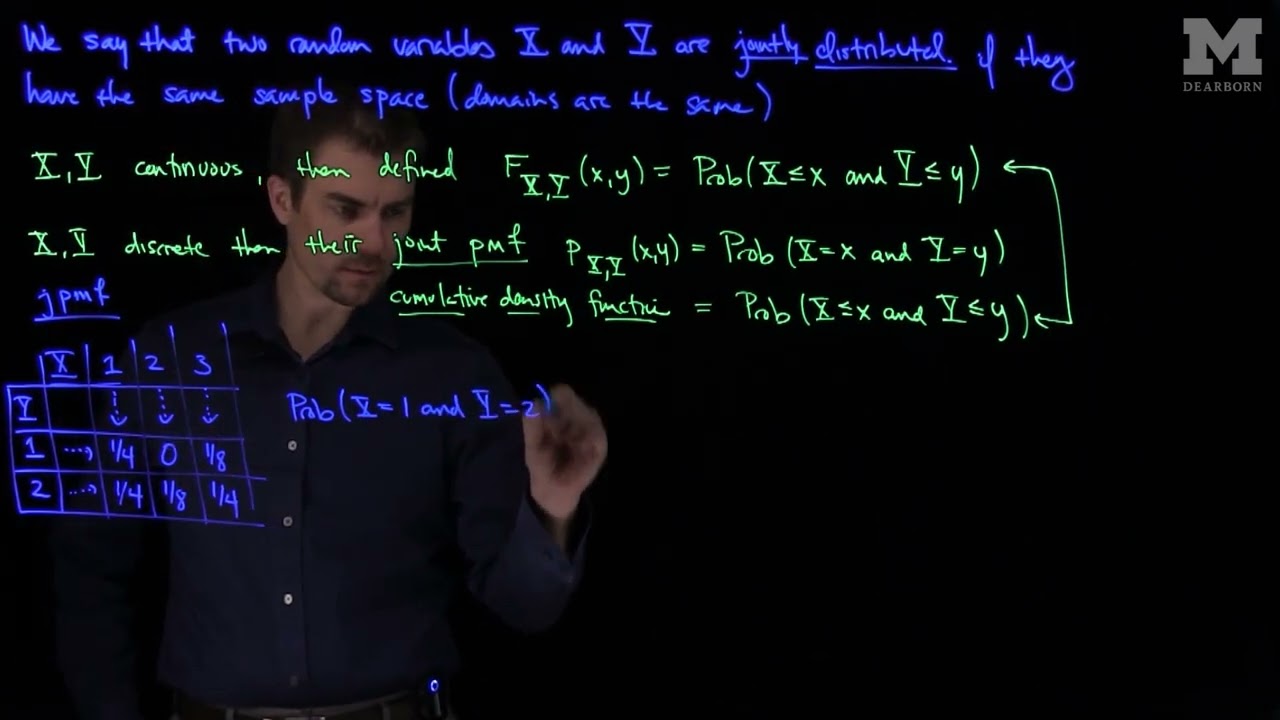 We say that two random variables X and Y are jointly distributed. if they
have the same sample space (domains are the same)
X, Y continuous, then defined F_X,Y (x,y) = Prob(X≤x and Y≤y)
X, Y discrete then their joint pmf P_X,Y (x,y) = Prob (X=x and Y=y)
jpmf
cumulative density function = Prob(X≤x and Y≤y)
X 1 2 3
Y
1 ...→ 1/4 0 1/8
2 ...→ 1/4 1/8 1/4
Prob(X=1 and Y=2)
M
DEARBORN